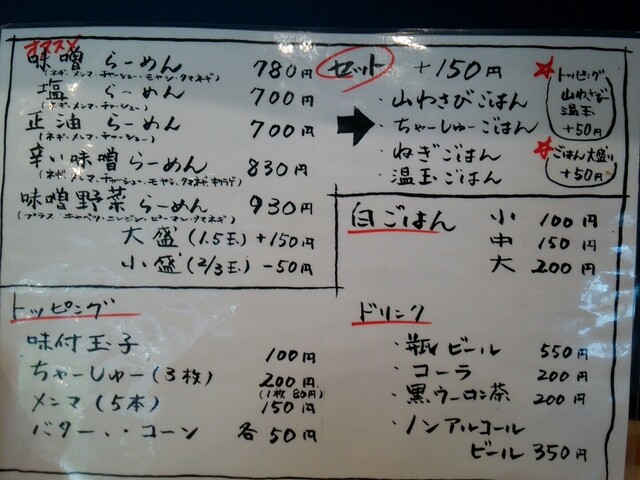 オススメ
味噌 らーめん 780円
(ネギ・メンマ・チャーシュー・モヤシ・タマネギ)
塩 らーめん 700円
(ネギ・メンマ・チャーシュー)
正油 らーめん 700円
(ネギ・メンマ・チャーシュー)
辛い味噌らーめん 830円
(ネギ・メンマ・チャーシュー・モヤシ・タマネギ・キクラゲ)
味噌野菜らーめん 930円
(プラス キャベツ・ニンジン・ピーマン・タマネギ)
大盛(1.5玉) +150円
小盛(2/3玉) -50円
セット +150円
・山わさびごはん
・ちゃーしゅーごはん
・ねぎごはん
・温玉ごはん
トッピング
山わさび
温玉
+50円
ごはん大盛り
+50円
白ごはん 小 100円
中 150円
大 200円
トッピング
味付玉子 100円
ちゃーしゅー(3枚) 200円
(1枚80円)
メンマ(5本) 150円
バター・・コーン 各50円
ドリンク
・瓶ビール 550円
・コーラ 200円
・黒ウーロン茶 200円
・ノンアルコール
ビール 350円